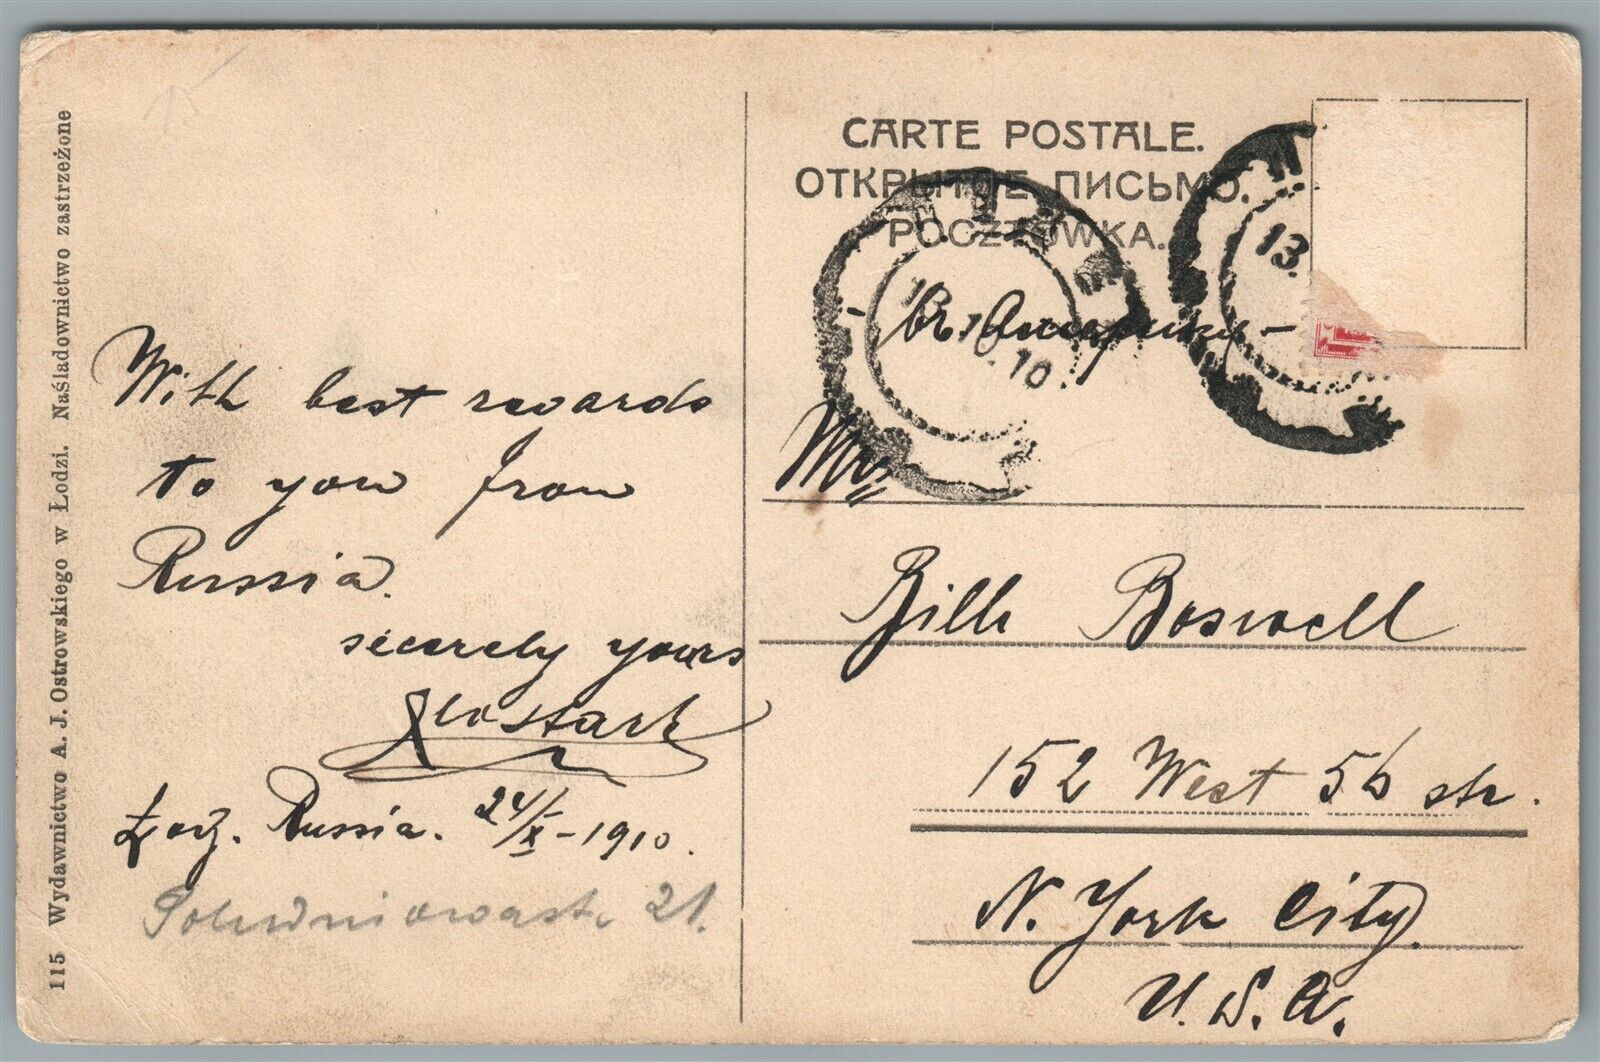 115 Wydawnictwo A. J. Ostrowskiego w Łodzi. Naśladownictwo zastrzeżone
With best regards
to you from
Russia.
secerely yours
Łodz. Russia. 24/X-1910.
21.
CARTE POSTALE.
ОТКРЫТОЕ ПИСЬМО.
POCZTÓWKA.
13.
10.
Въ Америку-
Mr.
Bill Boswell
152 West 56 str.
N. York City.
U. S. A.